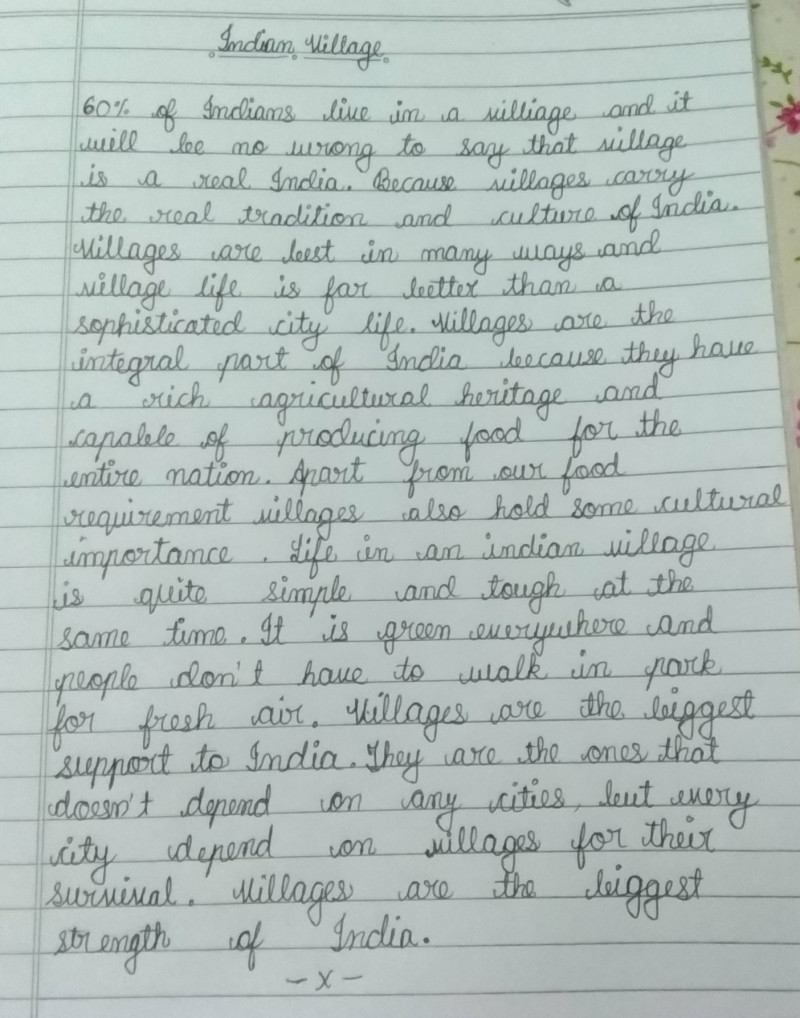 Indian Village
60% of Indians live in a villiage and it
will be no wrong to say that village
is a real India. Because villages carry
the real tradition and culture of India.
Villages are best in many ways and
village life is far better than a
sophisticated city life. Villages are the
integral part of India because they have
a rich agricultural heritage and
capable of producing food for the
entire nation. Apart from our food
requirement villages also hold some cultural
importance. Life in an indian village
is quite simple and tough at the
same time. It is green everywhere and
people don't have to walk in park
for fresh air. Villages are the biggest
support to India. They are the ones that
doesn't depend on any cities, but every
city depend on villages for their
survival. Villages are the biggest
strength of India.
-x-